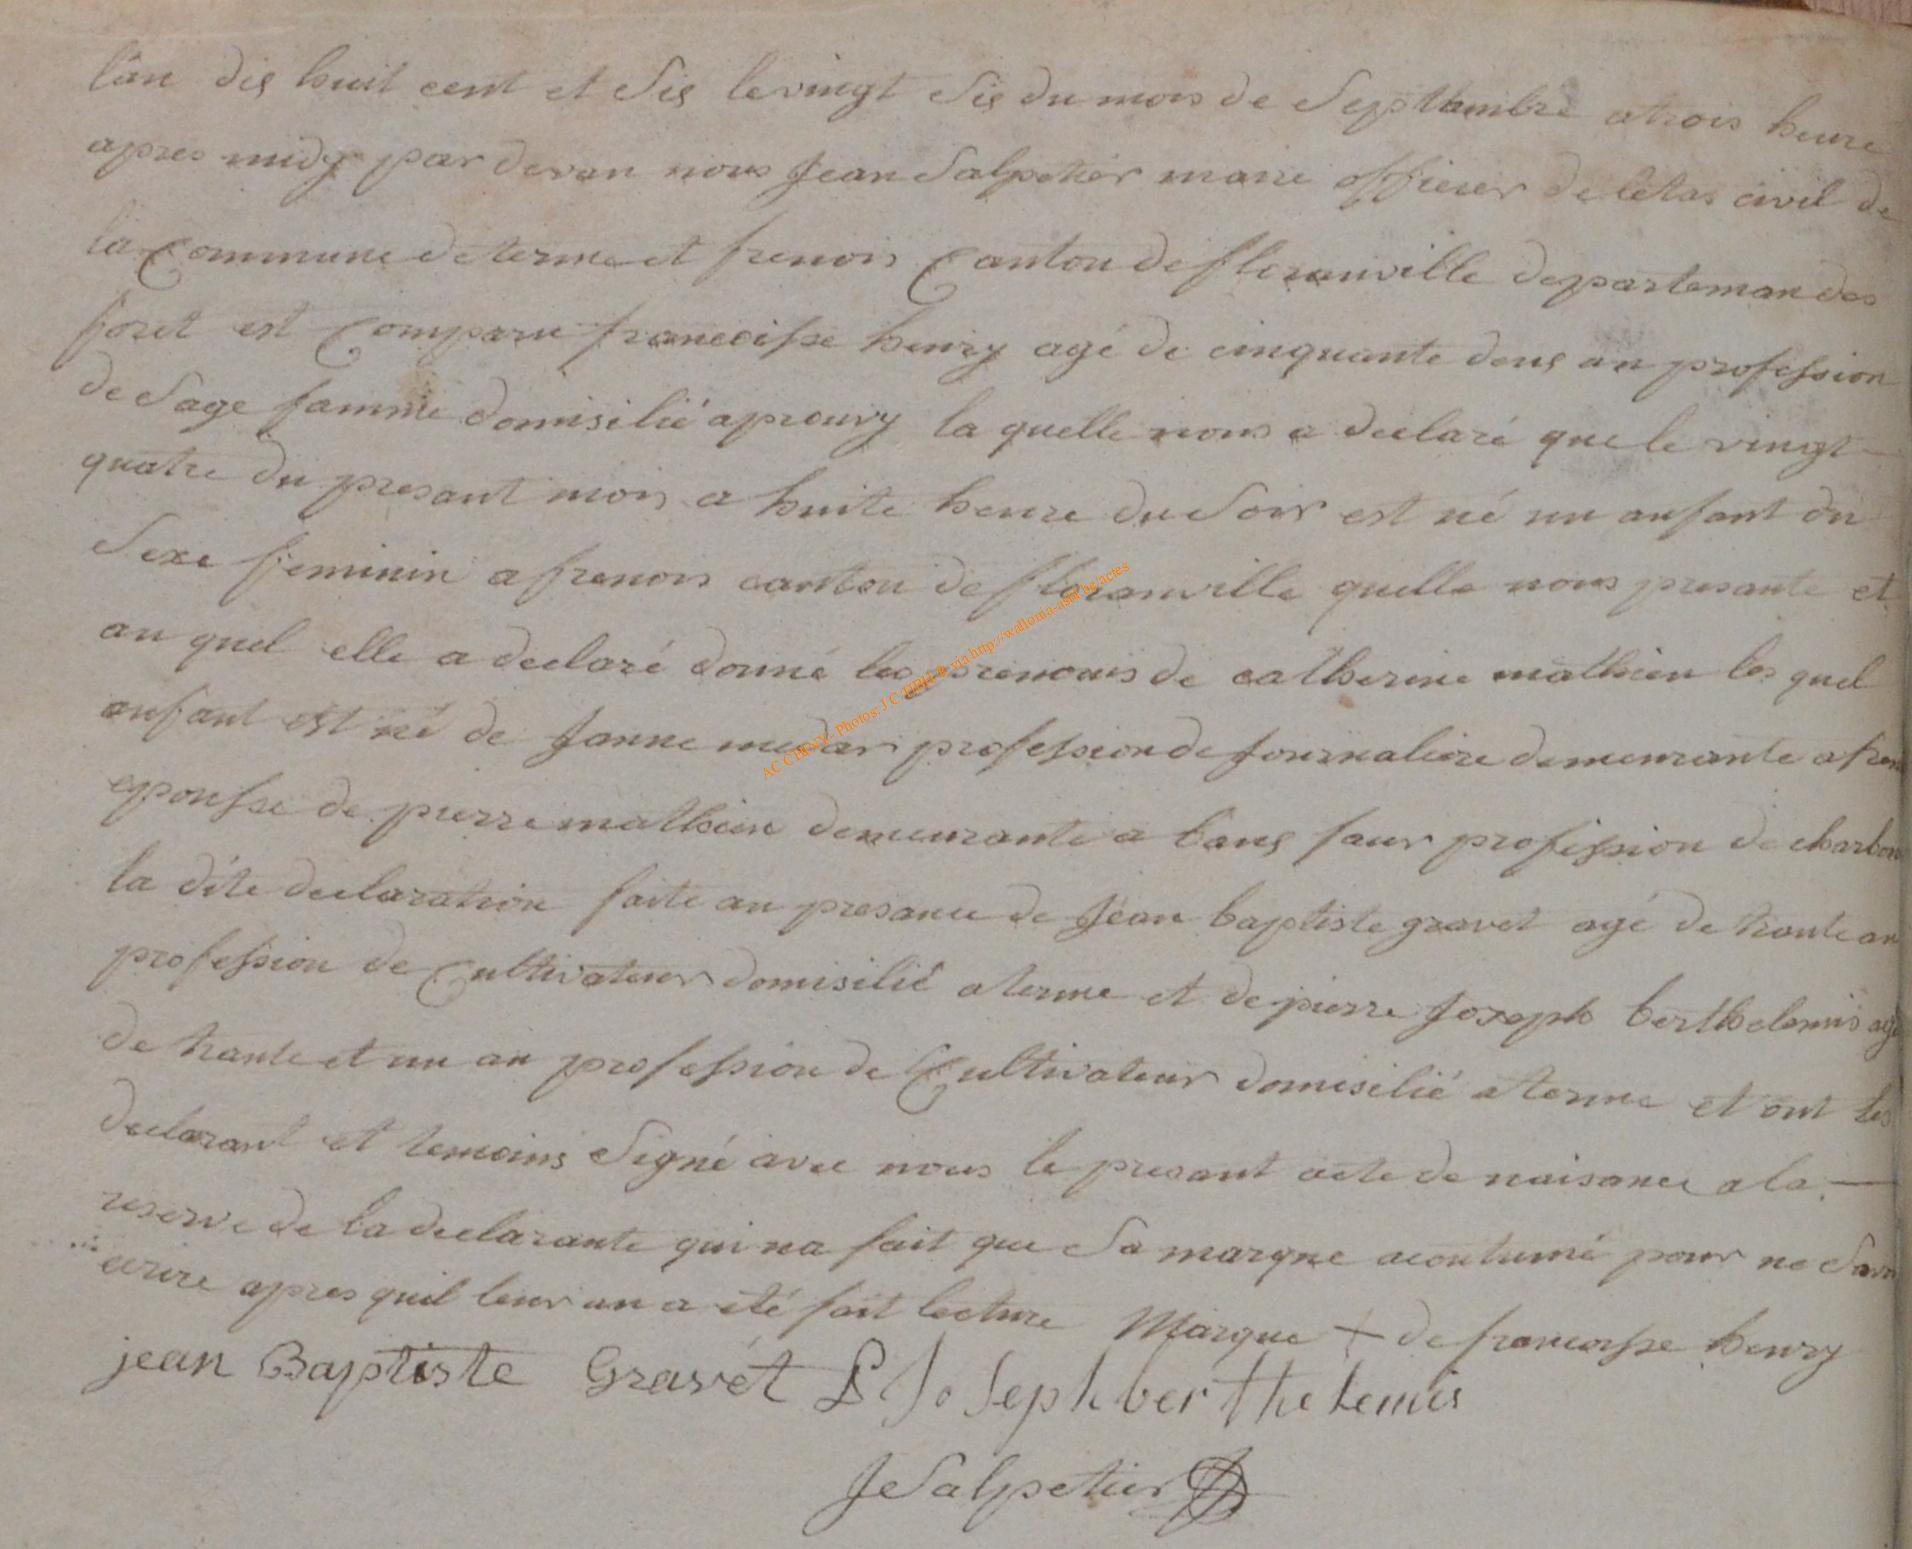 lân dis huit cent et sis le vingt sis du mois de Septhembre a trois heure
apres midy par devan nous Jean Salpetier maire officier de letas civil de
la Commune de terme et frenois Canton de floranville departeman des
foret est Comparu francoisse henry agé de cinquante deus an profession
de Sage famme domisilié a prouvy la quelle nous a declaré que le vingt
quatre du presant mois a huite heure du Soir est né un anfant du
Sexe feminin a frenois canton de floranville quelle nous presante et
au quel elle a declaré donné les prenoms de catherine mathieu les quel
anfant est né de Janne medar profession de Journaliere demeurante a fren
epousse de pierre mathieu demeurante a bans profession de charbon
la dite declaration faite an presance de Jean baptiste gravet agé de trante an
profession de Cultivateur domisilié a terme et de pierre Joseph berthelemis agé
de trante et un an profession de Cultivateur domisilié a terme et ont les
declarant et temoins Signé avec nous le presant acte de naisance a la
reserve de la declarante qui na fait que Sa marque acoutumé pour ne Savoi
ecrire apres quil leur an a été fait lecture Marque + de francoisse henry
jean Baptiste Gravet P Joseph berthelemis
J Salpetier
AC CHINY - Photos: J C via http://wallonia-asbl.be/actes